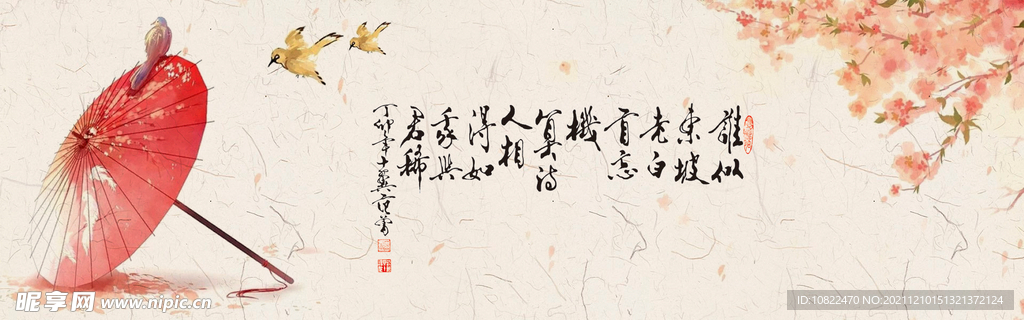 誰似
東坡
老白
首忘
機
算詩
人相
得如
我與
君稀
丁卯年十翼范曾
昵享网 www.nipic.cn
ID:10822470 NO:20211210151321372124